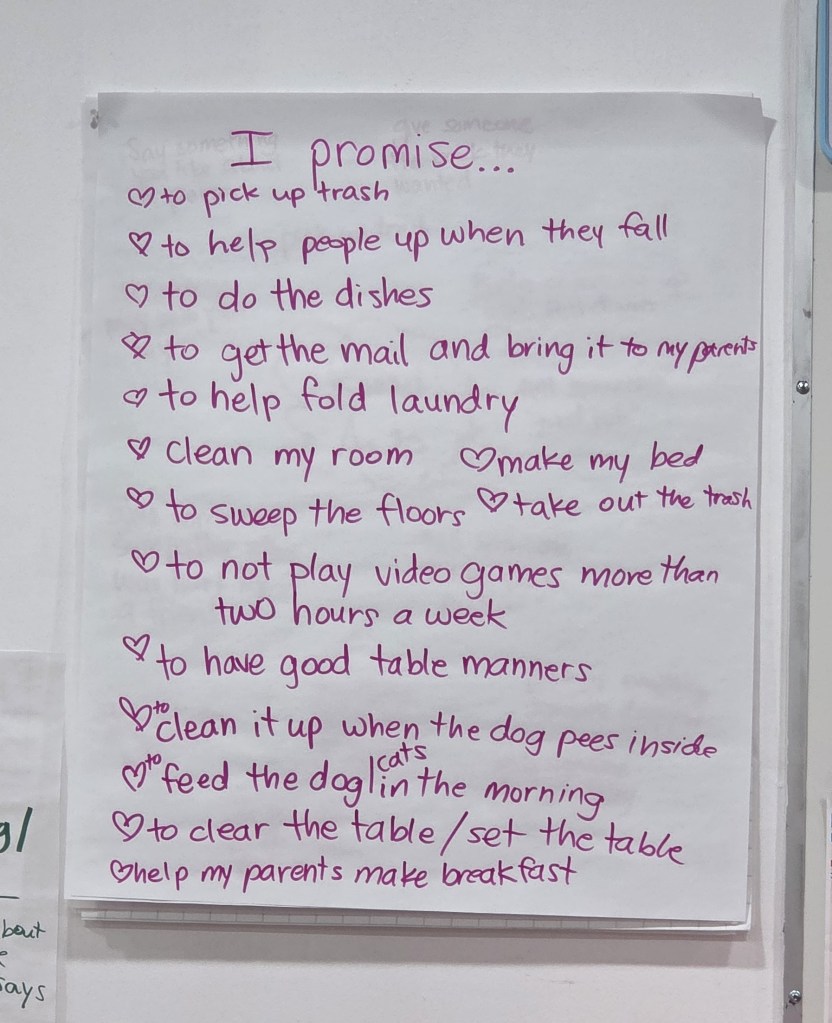 I promise...
♡ to pick up trash
♡ to help people up when they fall
♡ to do the dishes
♡ to get the mail and bring it to my parents
♡ to help fold laundry
♡ clean my room ♡ make my bed
♡ to sweep the floors ♡ take out the trash
♡ to not play video games more than
two hours a week
♡ to have good table manners
♡ to clean it up when the dog pees inside
♡ to feed the dog/cats in the morning
♡ to clear the table/set the table
♡ help my parents make breakfast
bout
says